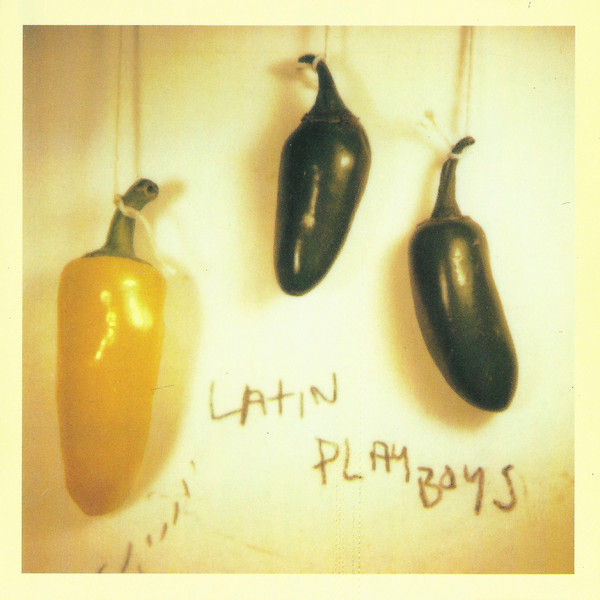 LATIN
PLAYBOYS